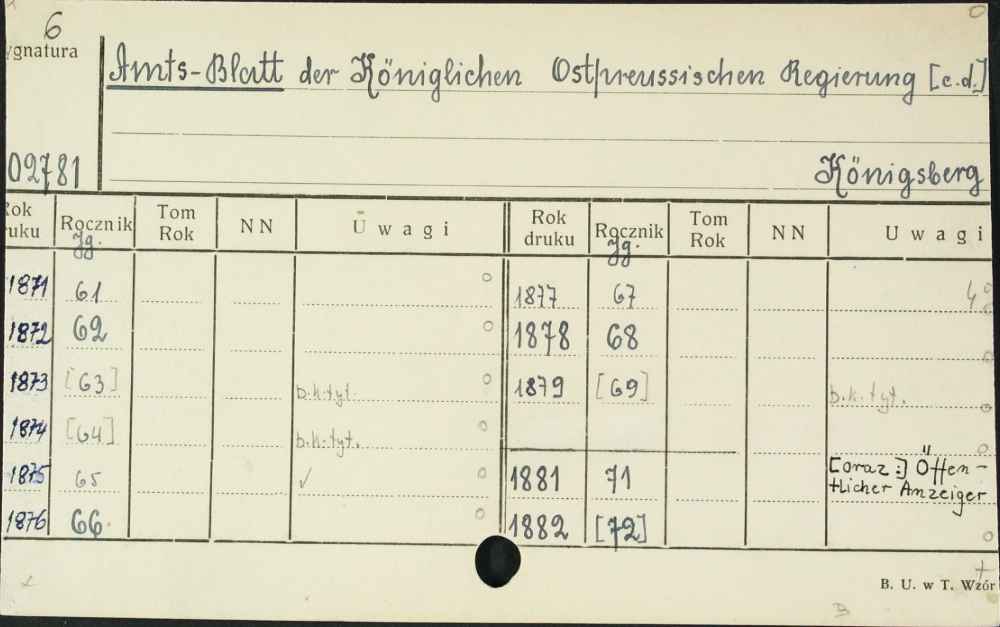 6
ygnatura
Amts-Blatt der Königlichen Ostpreussischen Regierung [c.d.]
02781
Königsberg
Rok druku Rocznik Jg. Tom Rok NN Uwagi Rok druku Rocznik Jg. Tom Rok NN Uwagi
1871 61 1877 67 4
1872 62 1878 68
1873 [63] b.k.tyt. 1879 [69] b.k.tyt.
1874 [64] b.k.tyt.
1875 65 ✓ 1881 71 [oraz:] Öffen-
tlicher Anzeiger
1876 66. 1882 [72]
B. U. w T. Wzór
B